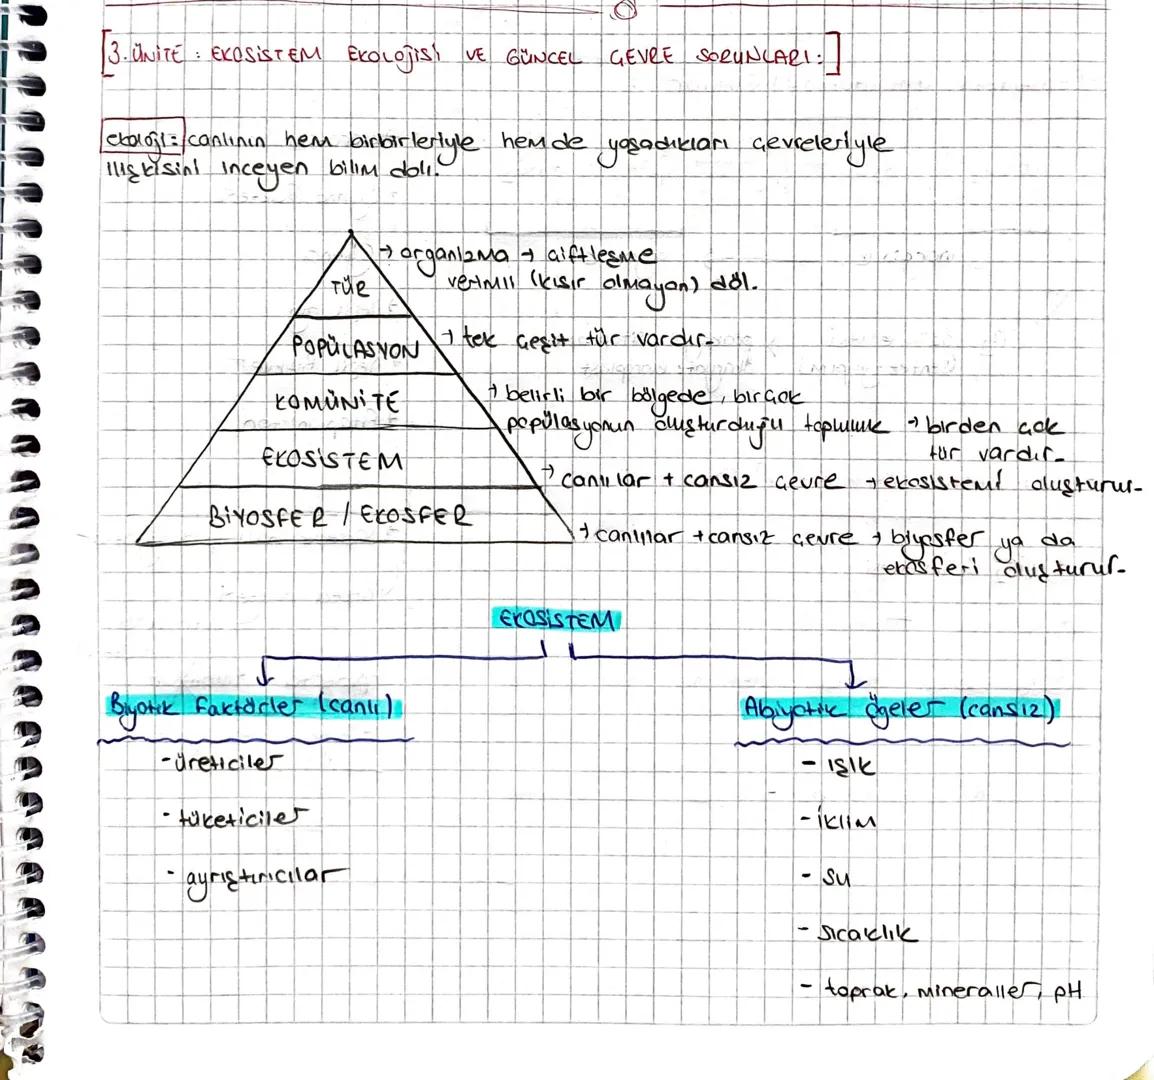 [3. ÜNİTE : EKOSİSTEM EKOLOJİSİ VE GÜNCEL ÇEVRE SORUNLARI:]
ekoloji: canlının hem birbirleriyle hem de yaşadıkları çevreleriyle
ilişkisini inceyen bilim dalı.
TÜR
→ organizma → çiftleşme
verimli (kısır olmayan) döl.
POPÜLASYON
→ tek çeşit tür vardır.
KOMÜNİTE
→ belirli bir bölgede, birçok
popülasyonun oluşturduğu topluluk → birden çok
tür vardır.
EKOSİSTEM
→ canlılar + cansız çevre → ekosistemi oluşturur.
BİYOSFER / EKOSFER
→ canlılar + cansız çevre → biyosfer ya da
ekosferi oluşturur.
EKOSİSTEM
Biyotik faktörler (canlı)
Abiyotik öğeler (cansız)
- üreticiler
- ışık
- tüketiciler
- iklim
- ayrıştırıcılar
- su
- sıcaklık
- toprak, mineraller, pH